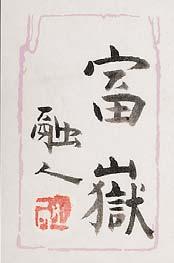 富嶽
融人